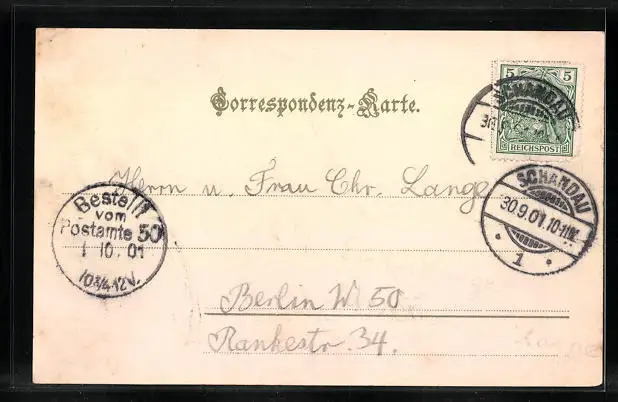 Correspondenz-Karte.
5 5
SCHANDAU
REICHSPOST
SCHANDAU
30.9.01.10-11V.
1
Herrn u. Frau Chr. Lange
Bestellt
vom
Postamte 50
1 10. 01
10¾-12V.
Berlin W 50
Rankestr. 34.